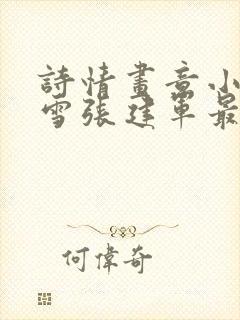 詩情畫意小
雪張建軍最
何偉奇